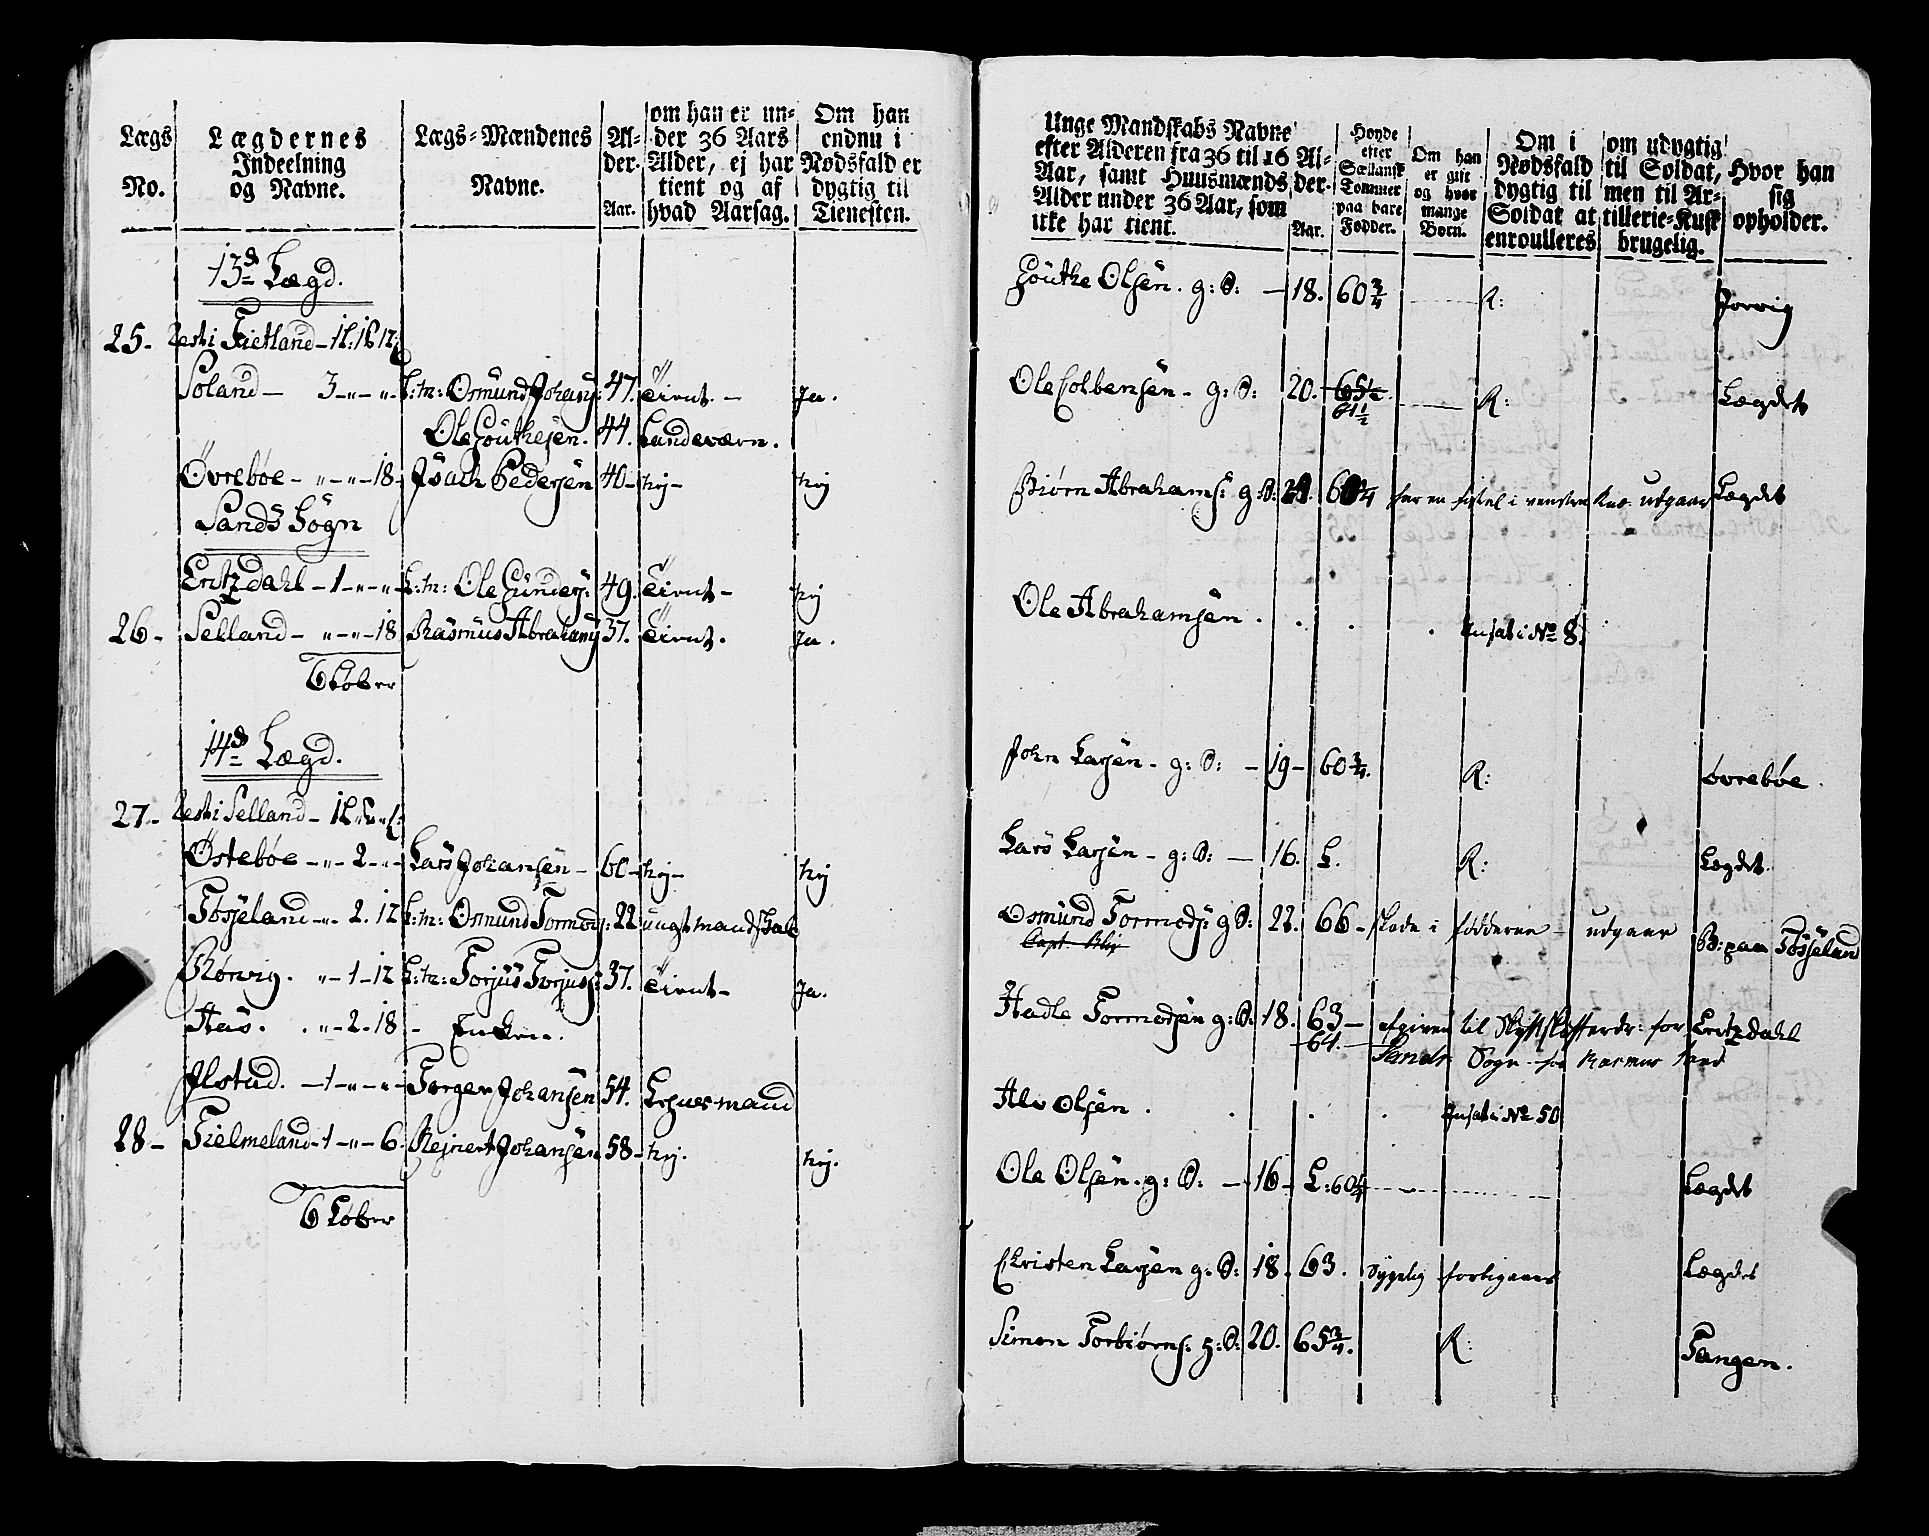 Lægs No.
Lægdernes Indeelning og Navne.
Lægs-Mændenes Navne.
Al- der. Aar.
om han er un- der 36 Aars Alder, ej har tient og af hvad Aarsag.
Om han endnu i Nødsfald er dygtig til Tienesten.
13d Lægd.
25- Resti Tietland - 1h: 16 12
Soland - 3 - " - " - L:m: Osmund Johans: 47. Tient. - Ja.
Ole Gouthesen. 44. Landeværn.
Øvrebøe - " - " - 18 - Isach Pedersen 40 - hej - hej
Sands Sogn
Eritzdahl - 1 - " - " - L:m: Ole Gunders: 49. Tient - hej
26- Selland - " - " - 18 Rasmus Abrahams 37. Tient. Ja.
6 Løber
14d Lægd.
27- Resti Selland -
Østebøe - " - 2 - " - Lars Johansen - 60 - hej - hej
Tøsseland - " - 2. 12 L:m: Osmund Tormods: 22 ungt mandskab
Rørvig. " - 1 - 12 L:m: Torjus Torjuss: 37. Tient - Ja.
Aas. . " - 2 - 18 - Enken.
Ilstad. - 1 - " - " - Torger Johansen 54. Legnesmand
28- Tielmeland - 1 - " - 6. Rejnert Johansen 58 - hej. hej.
6 Løber
Unge Mandskabs Navne efter Alderen fra 36 til 16 Aar, samt Huusmænds Alder under 36 Aar, som ikke har tient.
Al- der. Aar.
Høyde efter Sællandsk Tommer paa bare Fødder.
Om han er gift og hvor mange Børn.
Om i Nødsfald dygtig til Soldat at enroulleres
om udygtig til Soldat, men til Ar- tillerie-Kusk brugelig.
Hvor han sig opholder.
Gouthe Olsen. g: S: - 18. 60 3/4 R: Jorvig
Ole Colbensen - g: S: 20. 65 1/4 R: Lægdet
61 1/2
Biørn Abrahams: g: S: 21. 60 1/4 har en fistel i venstre Knæ udgaar Lægdet
Ole Abrahamsen . . . . Ansat i No 8.
John Larsen - g: S: - 19 - 60 3/4. R: øvrebøe.
Lars Larsen - g: S: - 16. L. R: Lægdet.
Osmund Tormods: g S: 22. 66 - skade i fødderne - udgaar B: paa Tøsseland
Hadle Tormodsen g: S: 18. 63 - afgiven til Skydskafferdr: for Eritzdahl
64. - Sands Sogn - for Rasmus
Alv Olsen . . . . Ansat i No 50
Ole Olsen. g: S: - 16 - L: 60 1/4 Lægdet
Christen Larsen g: S: 18. 63. sygelig forbigaaes Lægdet
Simon Torbiørns: g: S: 20. 65 3/4. R: Tangen.